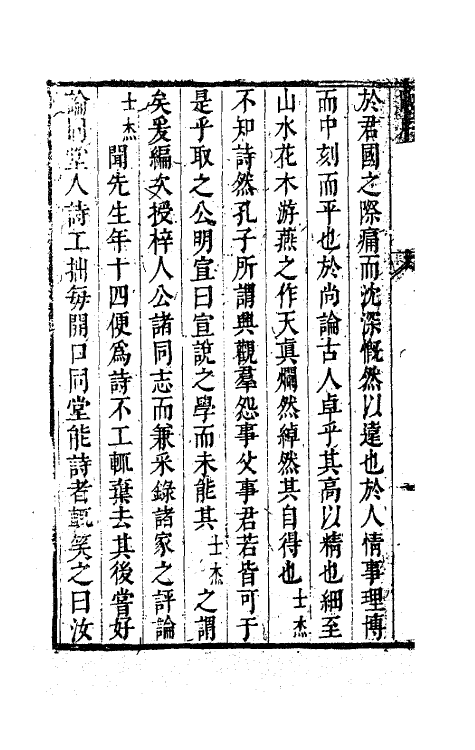 於君國之際痛而沈深慨然以遠也於人情事理博
而中刻而平也於尚論古人卓乎其高以精也細至
山水花木游燕之作天真爛然綽然其自得也士杰
不知詩然孔子所謂興觀羣怨事父事君若皆可于
是乎取之公明宣曰宣說之學而未能其士杰之謂
矣爰編次授梓人公諸同志而兼采錄諸家之評論
士杰聞先生年十四便爲詩不工輒棄去其後嘗好
論同堂人詩工拙每開口同堂能詩者輒笑之曰汝